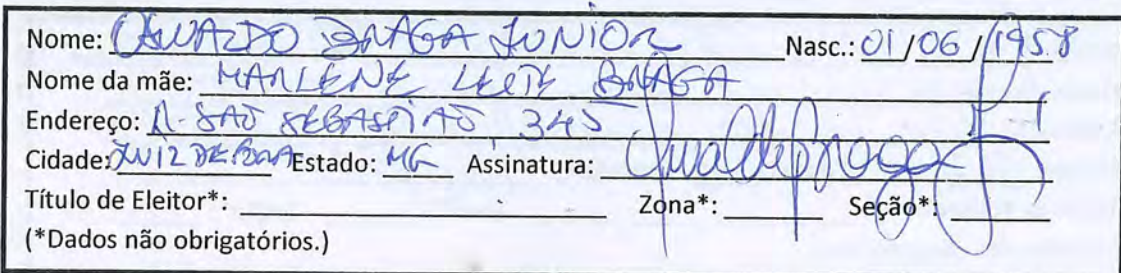 Nome: OSWALDO BRAGA JUNIOR Nasc.: 01/06/1958
Nome da mãe: MARLENE LEITE BRAGA
Endereço: R. SÃO SEBASTIÃO 345
Cidade: JUIZ DE FORA Estado: MG Assinatura:
Título de Eleitor*: Zona*: Seção*:
(*Dados não obrigatórios.)